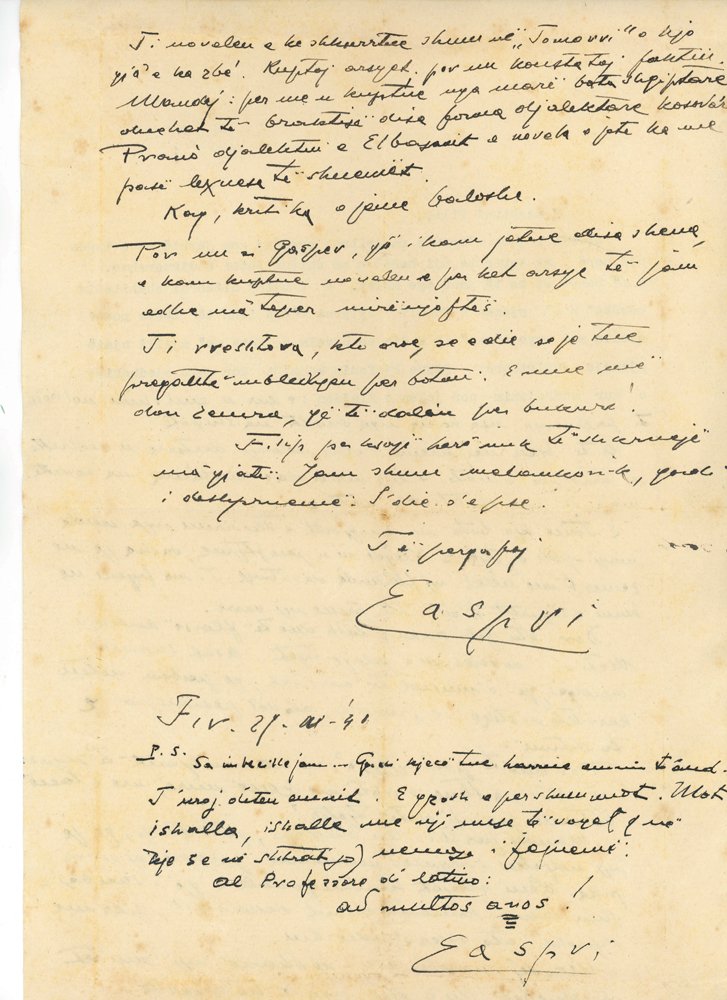 Ti novelen e ke shkurtue shum në „Tomorri" o kjo
gjâ e ka zbé. Kuptoj arsyet, por un konstatoj faktin.
Mandej: per me u kuptue nga marë bota shqiptare
duhet të braktisë disa forma djalektore kosovár
Pranò djalektin e Elbasanit e novela e jote ka me
pasë lexuesa të shumët.
Kaq, kritika o jeme baloshe.
Por un si Gasper, që i kam jetue disa skena,
e kam kuptue novelen e per ket arsye të jam
edhe má teper mirënjoftës.
Ti rreshtova, kto orë, se e die se je tue
pregatitë mbledhjen per botim. E mue më
don zemra, që të dalën per bukuri!
Filip per kësaj here nuk të shkruej
má gjatë. Jam shum melankonik, gadi
i dëshpruemë. S'die s'e pse!
Të perqafoj
Gaspri
Fir. 29. XI - 41
P.S. Sa imbecille jam... Gadi kjeçë tue harrue emnin tând.
T'uroj diten emnit. E gzosh e per shum mot. Mot
ishalla, ishalla me nji nuse të vogel (që në
kje se në shtrat jo) nemose i fejuemë.
al Professore di latino:
ad multos anos!
Gaspri